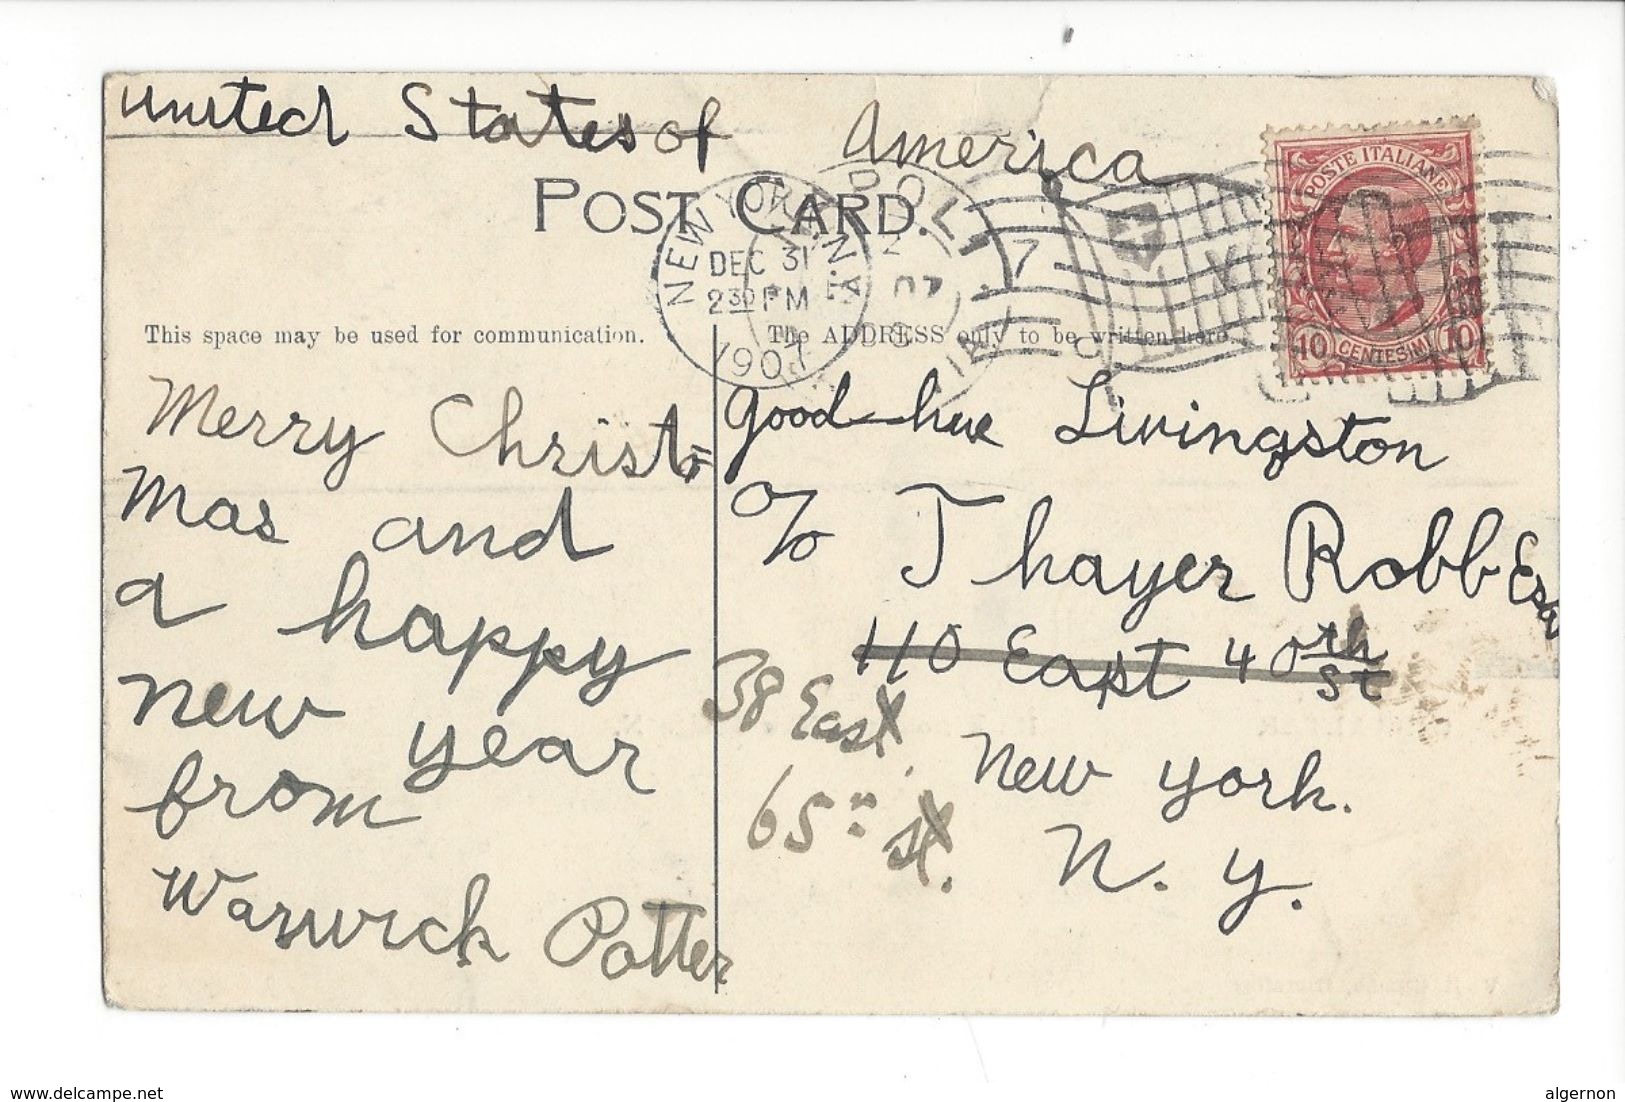 United States of America
POST CARD.
NEW YORK, N.Y.
DEC 31
2 30 PM
1907
POSTE ITALIANE
10 CENTESIMI 10
This space may be used for communication.
The ADDRESS only to be written here.
Merry Christ=
mas and
a happy
new year
from
Warwick Potter
good-hue Livingston
c/o Thayer Robb Esq
110 East 40th St
38 East
65th St.
New York.
N. Y.
www.delcampe.net
algernon